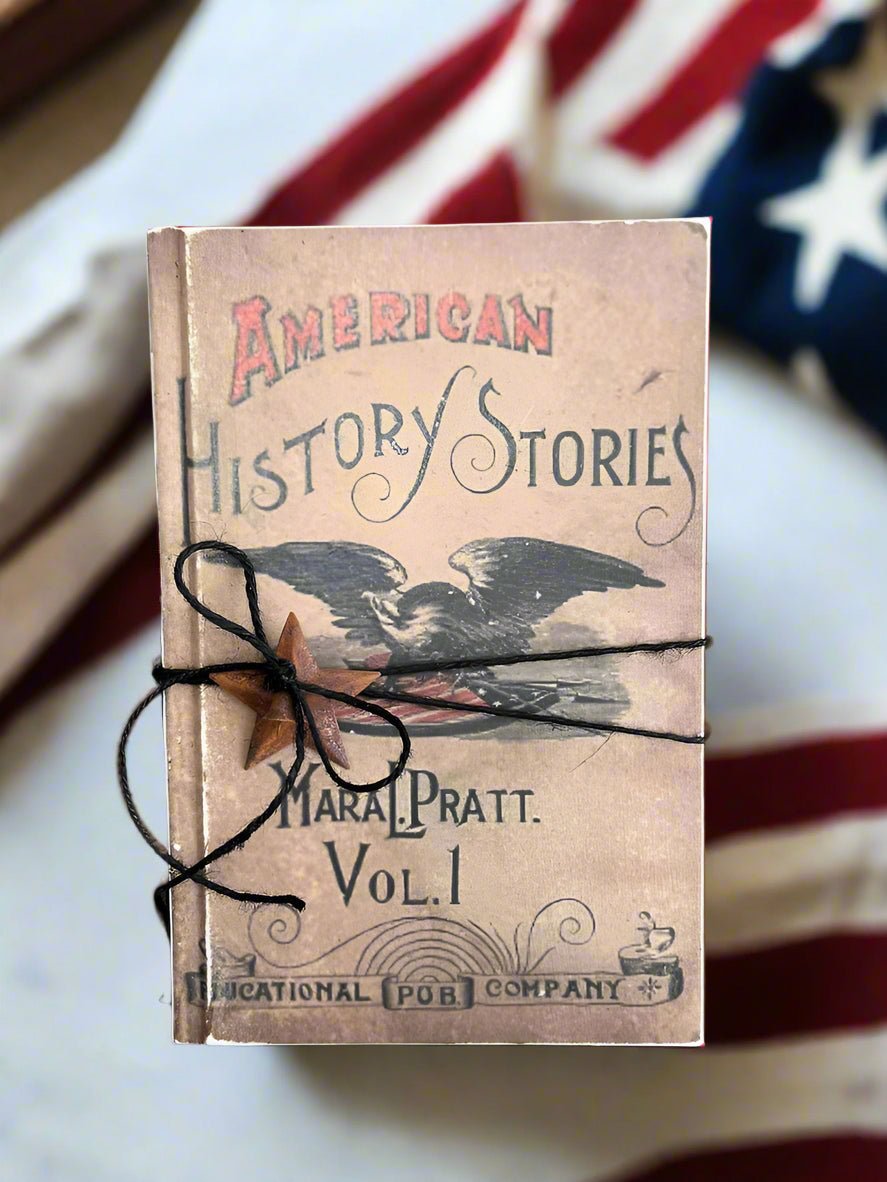 AMERICAN
HISTORY STORIES
MARA L. PRATT.
VOL. 1
EDUCATIONAL PUB. COMPANY